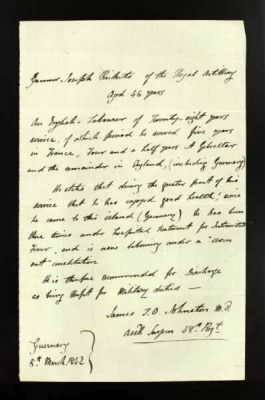 Gunner Joseph Ricketts of the Royal Artillery
Aged 46 years
An English Labourer of Twenty-eight years
service, of which period he served five years
in France, Four and a half years at Gibraltar
and the remainder in England, (including Guernsey)
He states that during the greater part of his
service that he has enjoyed good health; since
he came to this island (Guernsey) he has been
three times under hospital treatment for Intermittent
Fever, and is now labouring under a "worn
out" constitution
He is therefore recommended for Discharge
as being Unfit for Military duties —
James T.O. Johnston M.D.
Assist Surgeon 48th Regt
Guernsey
8th March 1842